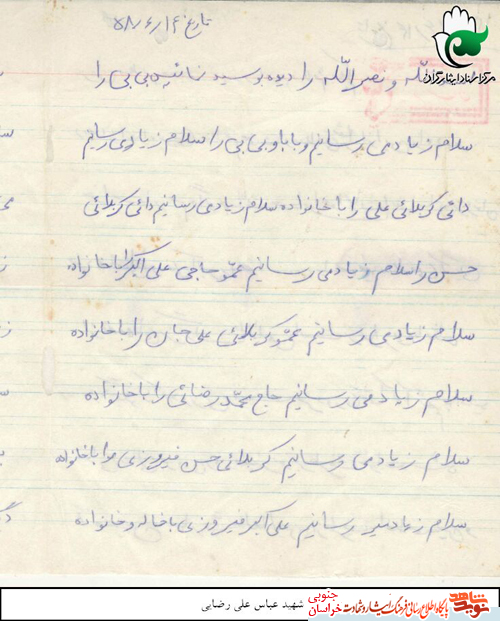 تاریخ ۵۸/۶/۱۴
مرکز اسناد ایثارگران
الله و نصرالله را دیده بوسیده بی بی را
سلام زیاد می رسانیم و بابا و بی بی را سلام زیاد می رسانیم
دائی کربلائی علی را با خانواده سلام زیاد می رسانیم دائی کربلائی
حسن را سلام زیاد می رسانیم عمو حاجی علی اکبر را با خانواده
سلام زیاد می رسانیم عمو کربلائی علی جان را با خانواده
سلام زیاد می رسانیم حاج محمد رضائی را با خانواده
سلام زیاد می رسانیم کربلائی حسن فیروزی را با خانواده
سلام زیاد می رسانیم علی اکبر فیروزی با خاله و خانواده
شهید عباس علی رضایی
خراسان جنوبی
پایگاه اطلاع رسانی فرهنگ ایثار و شهادت
نوید شاهد